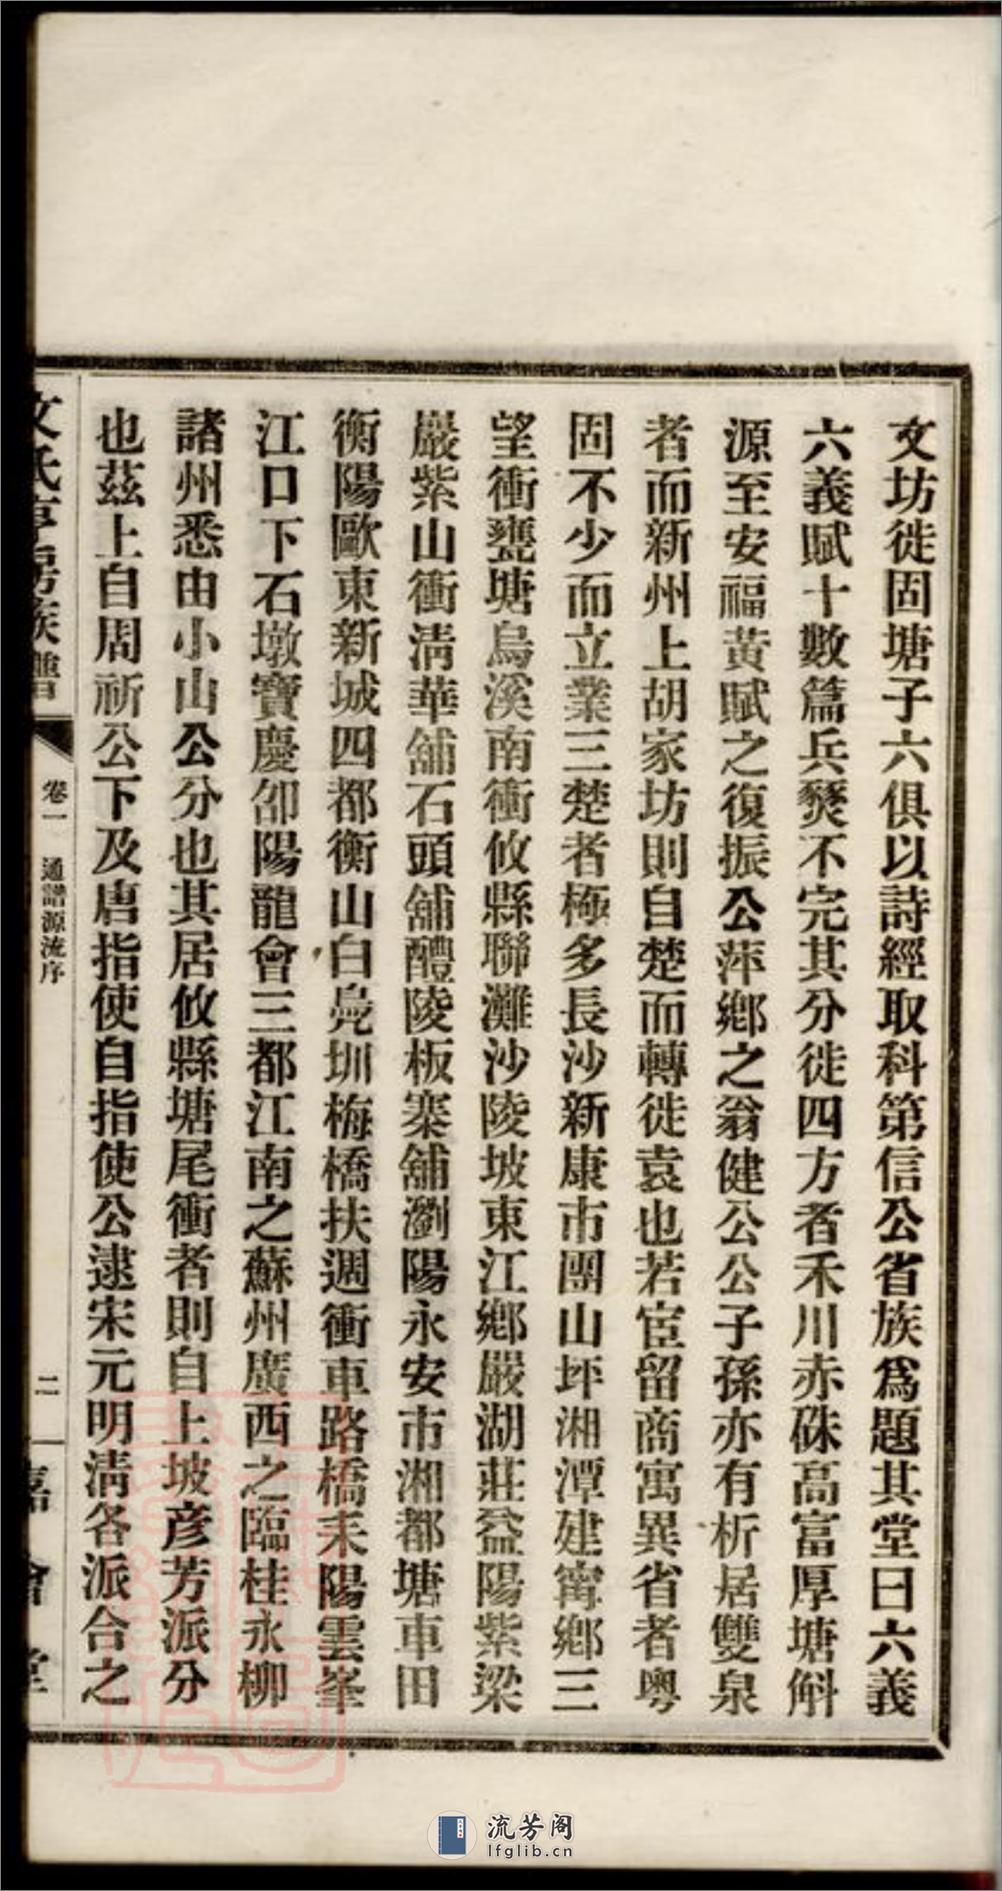 文坊徙固塘子六俱以詩經取科第信公省族爲題其堂曰六義
六義賦十數篇兵燹不完其分徙四方者禾川赤硃高富厚塘斛
源至安福黃賦之復振公萍鄉之翁健公公子孫亦有析居雙泉
者而新州上胡家坊則自楚而轉徙袁也若宦留商寓異省者粤
固不少而立業三楚者極多長沙新康市團山坪湘潭建寗鄉三
望衝甕塘烏溪南衝攸縣聯灘沙陵坡東江鄉嚴湖莊益陽紫梁
嚴紫山衝淸華舖石頭舖醴陵板寨舖瀏陽永安市湘都塘車田
衡陽歐東新城四都衡山白鳧圳梅橋扶週衝車路橋耒陽雲峯
江口下石墩寶慶邵陽龍會三都江南之蘇州廣西之臨桂永柳
諸州悉由小山公分也其居攸縣塘尾衝者則自上坡彦芳派分
也茲上自周祈公下及唐指使自指使公逮宋元明淸各派合之
文氏亨房族譜
卷一 通譜源流序
二
嘉會堂
流芳阁
lfglib.cn